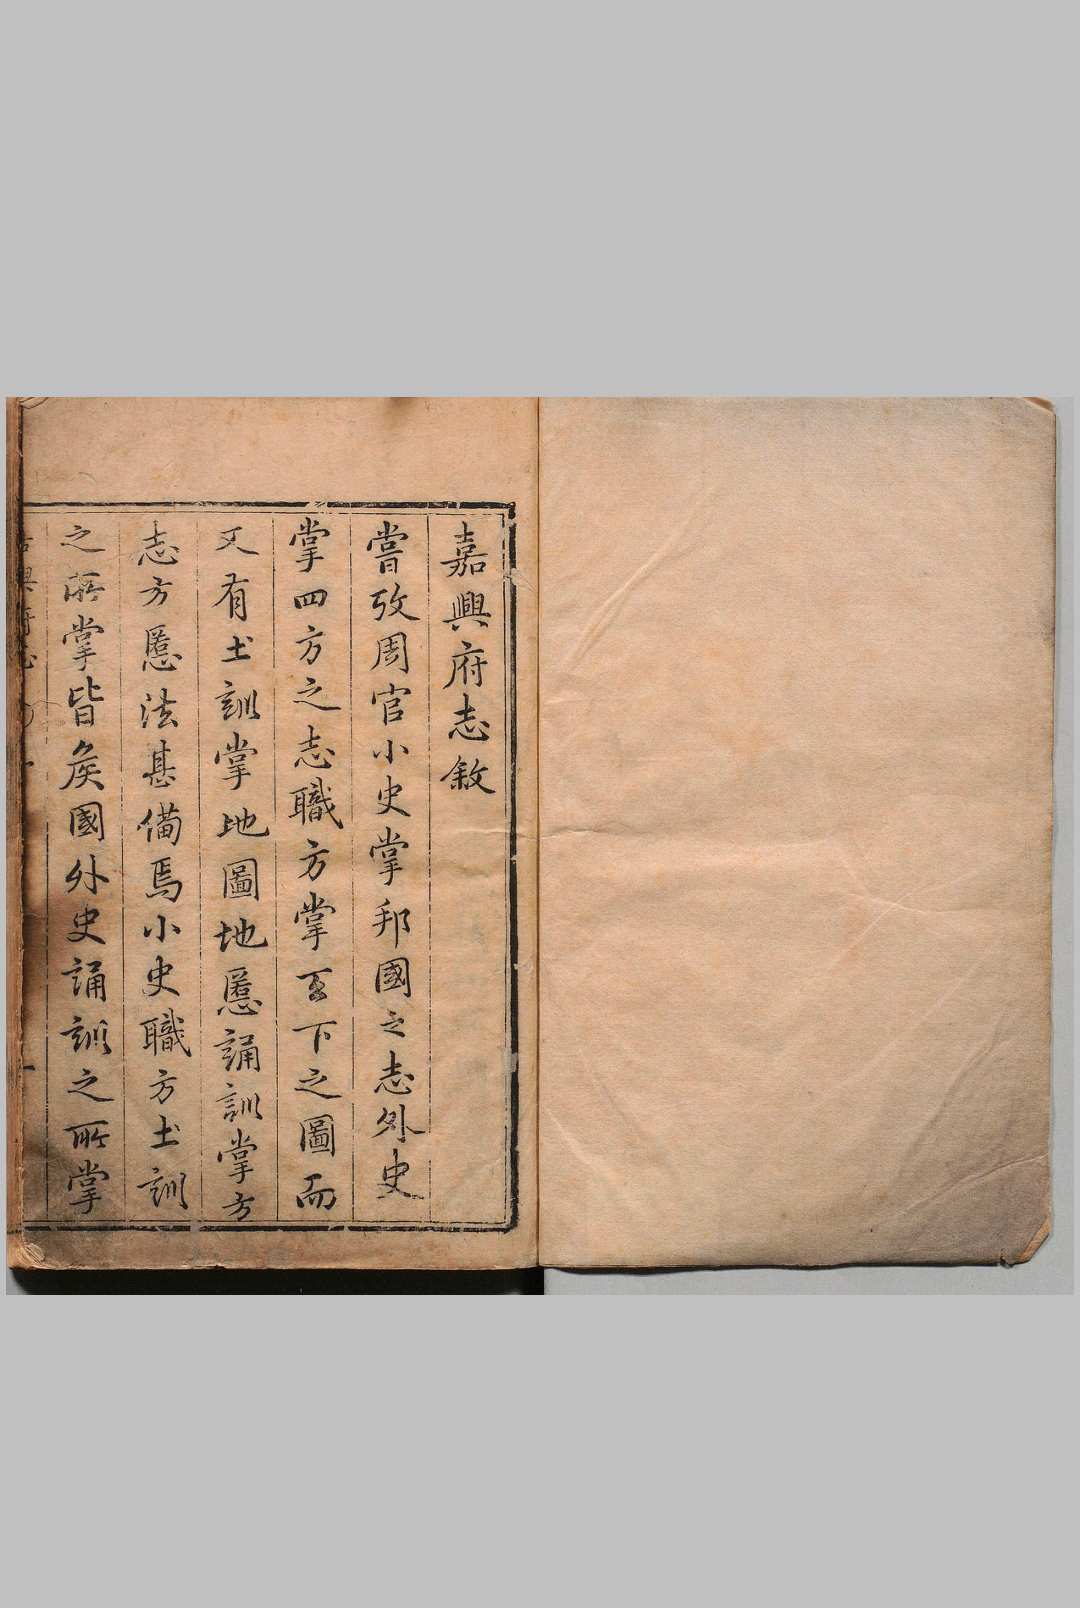 嘉興府志敘
嘗攷周官小史掌邦國之志外史
掌四方之志職方掌天下之圖而
又有土訓掌地圖地慝誦訓掌方
志方慝法甚備焉小史職方土訓
之所掌皆矦國外史誦訓之所掌